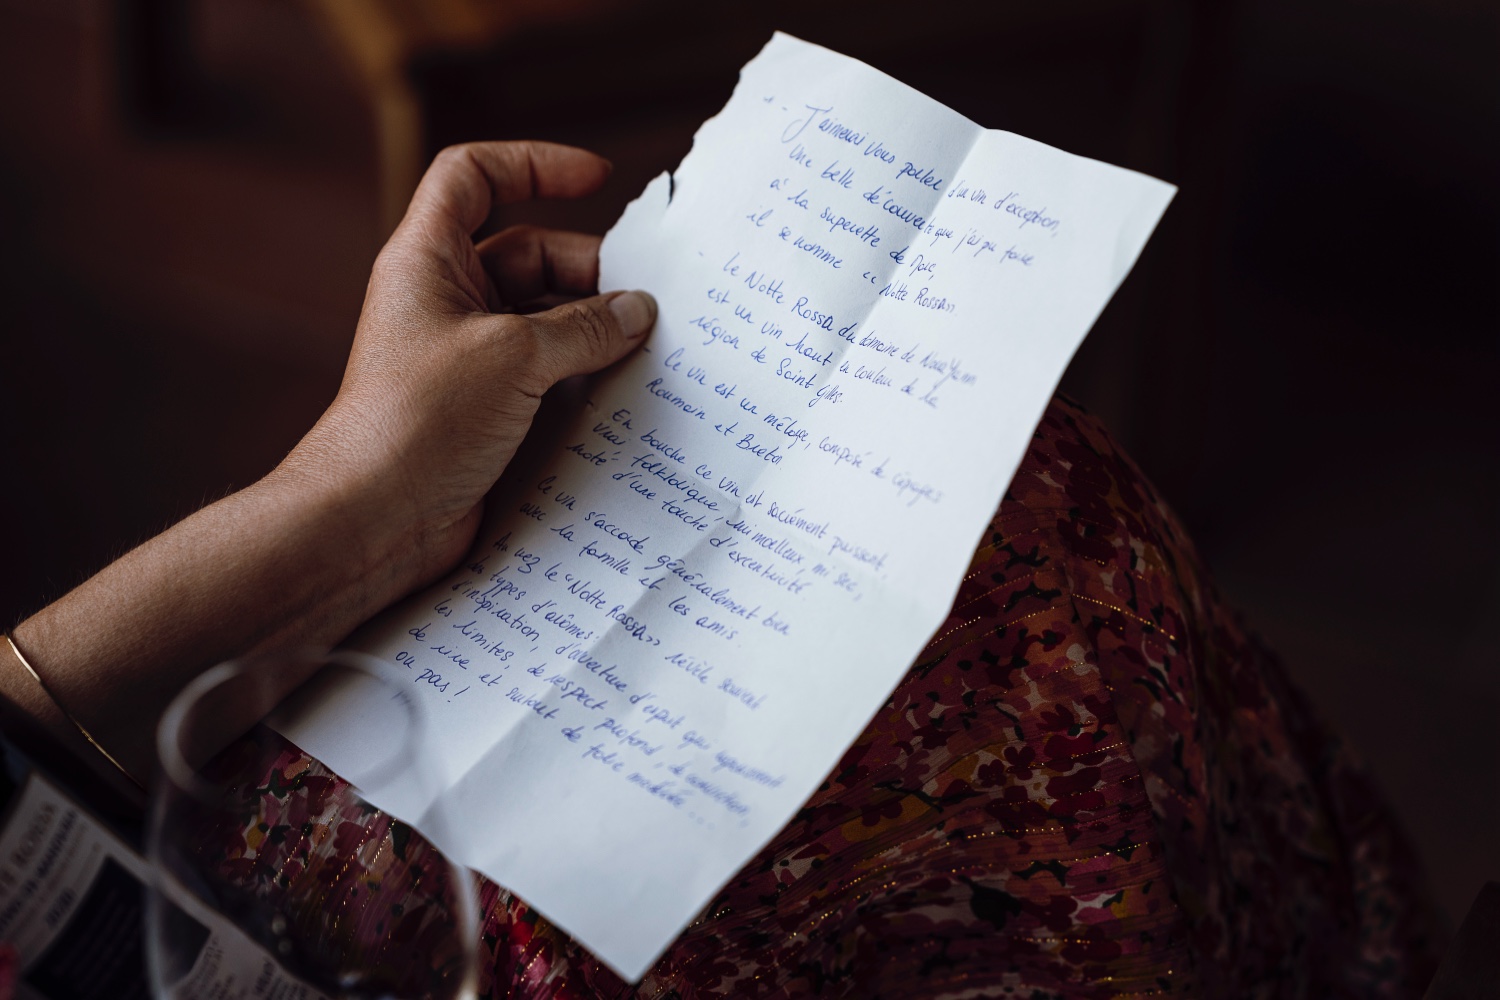 - J'aimerai vous parler d'un vin d'exception,
Une belle découverte que j'ai pu faire
à la superette de
il se nomme « Notte Rossa».
- Le Notte Rossa du domaine de
est un vin haut en couleur de la
région de Saint Gilles.
- Ce vin est un mélage, composé de cépages
Roumain et Breton.
- En bouche ce vin est sacrément puissant.
Vrai folklorique, mi moelleux, mi sec,
noté d'une touche d'excentricité.
Ce vin s'accode généralement bien
avec la famille et les amis.
Au nez le «Notte Rossa» révèle souvent
des types d'arômes:
d'inspiration, d'ouverture d'esprit qui repoussent
les limites, de respect profond, de conviction,
de rire et surtout de folie modérée...
ou pas !